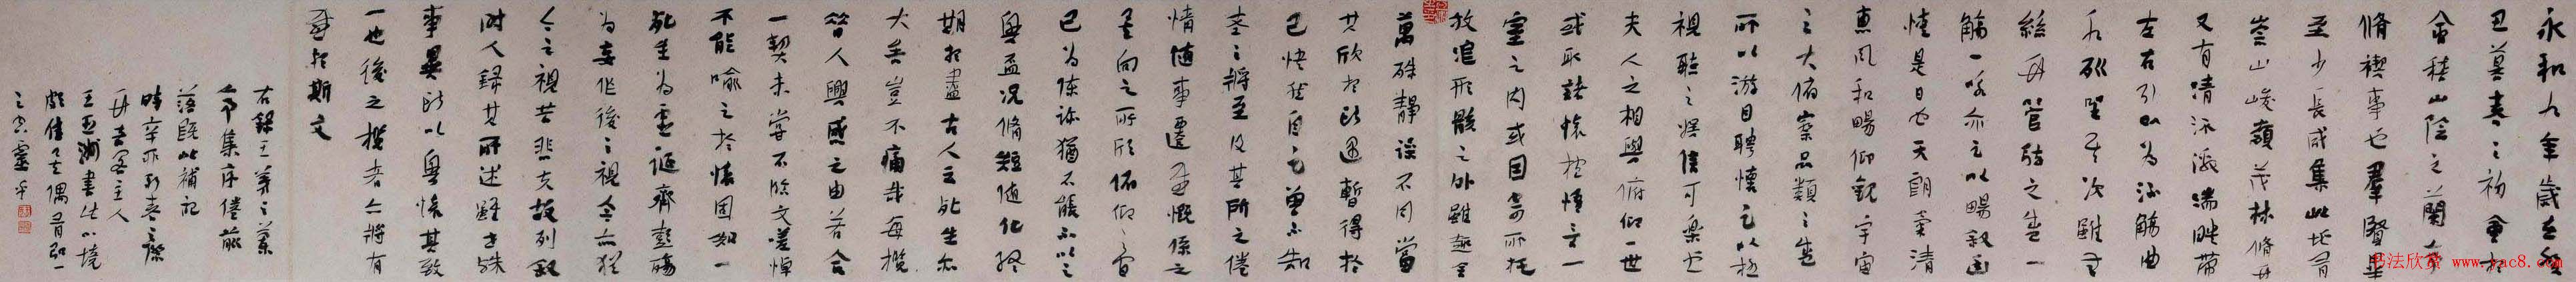 永和九年歲在癸
丑莫春之初會於
會稽山陰之蘭亭
脩禊事也羣賢畢
至少長咸集此地有
崇山峻嶺茂林脩竹
又有清流激湍映帶
左右引以為流觴曲
水列坐其次雖無
絲竹管弦之盛一
觴一詠亦足以暢敘幽
情是日也天朗氣清
惠風和暢仰觀宇宙
之大俯察品類之盛
所以游目騁懷足以極
視聽之娛信可樂也
夫人之相與俯仰一世
或取諸懷抱悟言一
室之內或因寄所托
放浪形骸之外雖趣舍
萬殊靜躁不同當
其欣於所遇暫得於
己快然自足曾不知
老之將至及其所之倦
情隨事遷感慨係之
矣向之所欣俯仰之間
已為陳跡猶不能不以之
興感況脩短隨化終
期於盡古人云死生亦
大矣豈不痛哉每攬
昔人興感之由若合
一契未嘗不臨文嗟悼
不能喻之於懷固知一
死生為虛誕齊彭殤
為妄作後之視今亦猶
今之視昔悲夫故列敘
時人錄其所述雖世殊
事異所以興懷其致
一也後之攬者亦將有
感於斯文
右錄王羲之蘭
亭集序
此補記
時辛卯新春
主人
王亞洲書
偶有
书法欣赏 www.yac8.com